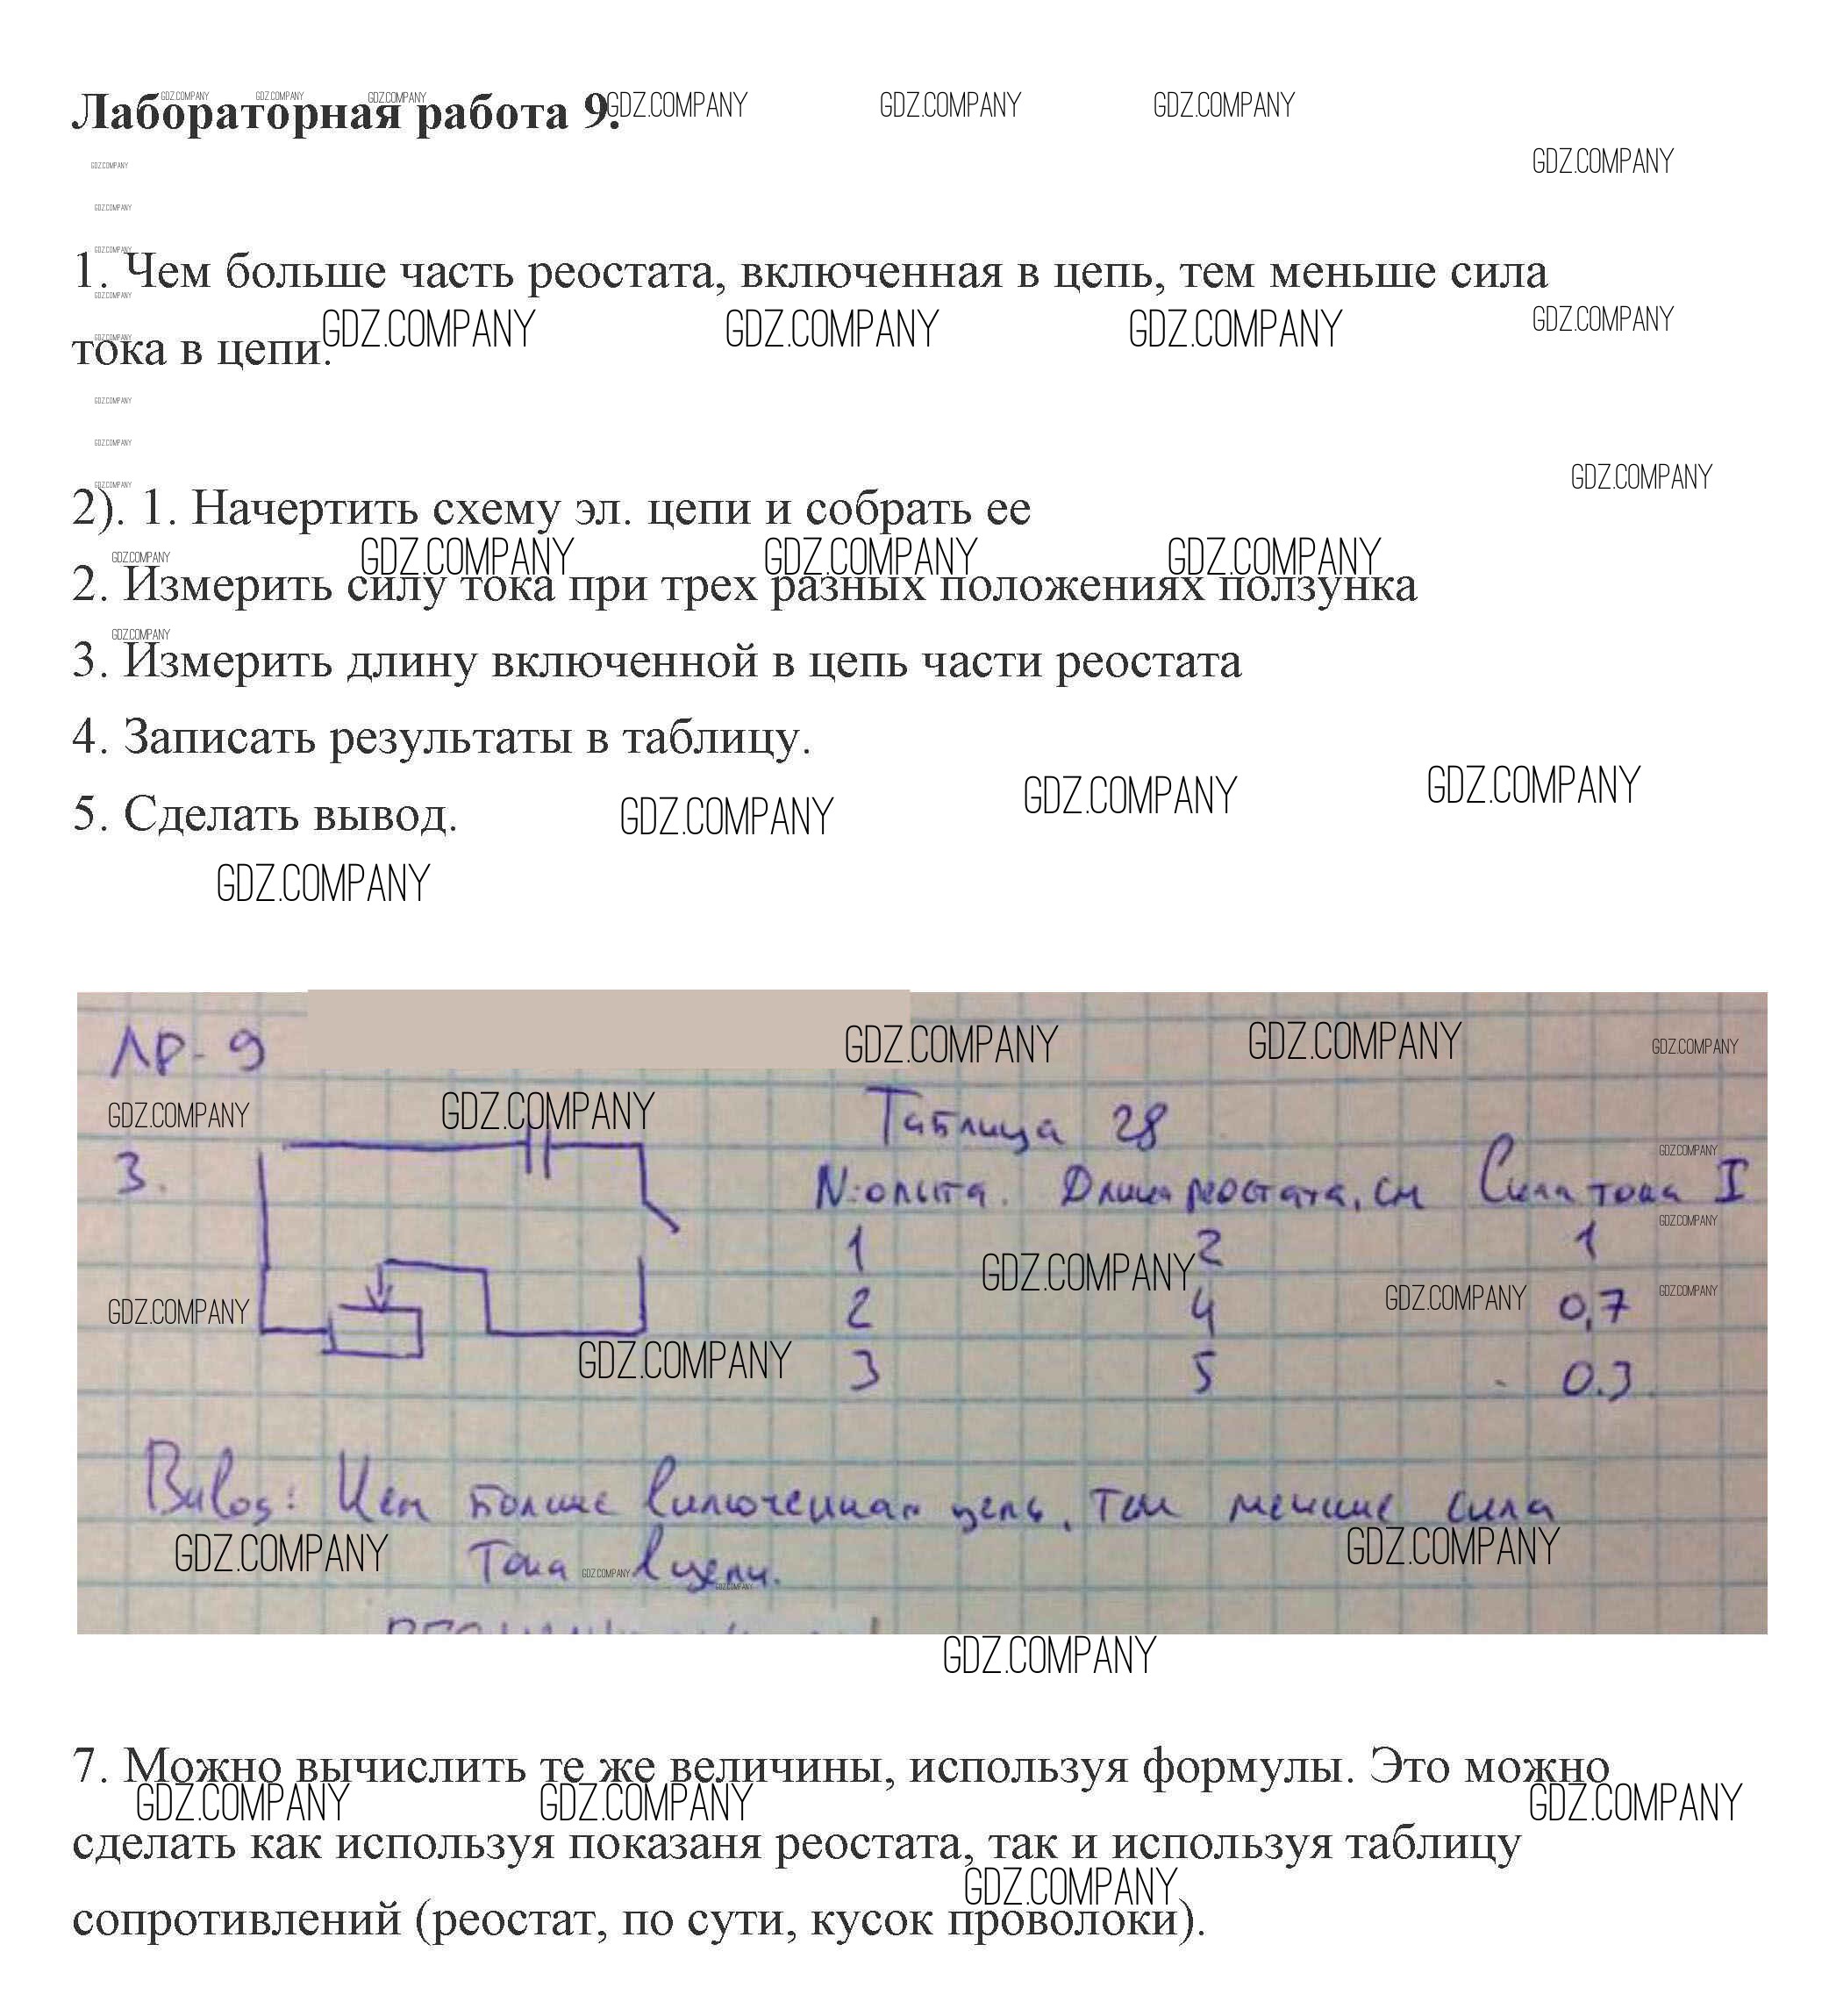 Лабораторная работа 9.
1. Чем больше часть реостата, включенная в цепь, тем меньше сила
тока в цепи.
2). 1. Начертить схему эл. цепи и собрать ее
2. Измерить силу тока при трех разных положениях ползунка
3. Измерить длину включенной в цепь части реостата
4. Записать результаты в таблицу.
5. Сделать вывод.
ЛР-9
3.
Таблица 28
N:опыта. Длина реостата, см Сила тока I
1 2 1
2 4 0,7
3 5 0.3
Вывод: Чем больше включенная цепь, тем меньше сила
тока в цепи.
7. Можно вычислить те же величины, используя формулы. Это можно
сделать как используя показаня реостата, так и используя таблицу
сопротивлений (реостат, по сути, кусок проволоки).
GDZ.COMPANY